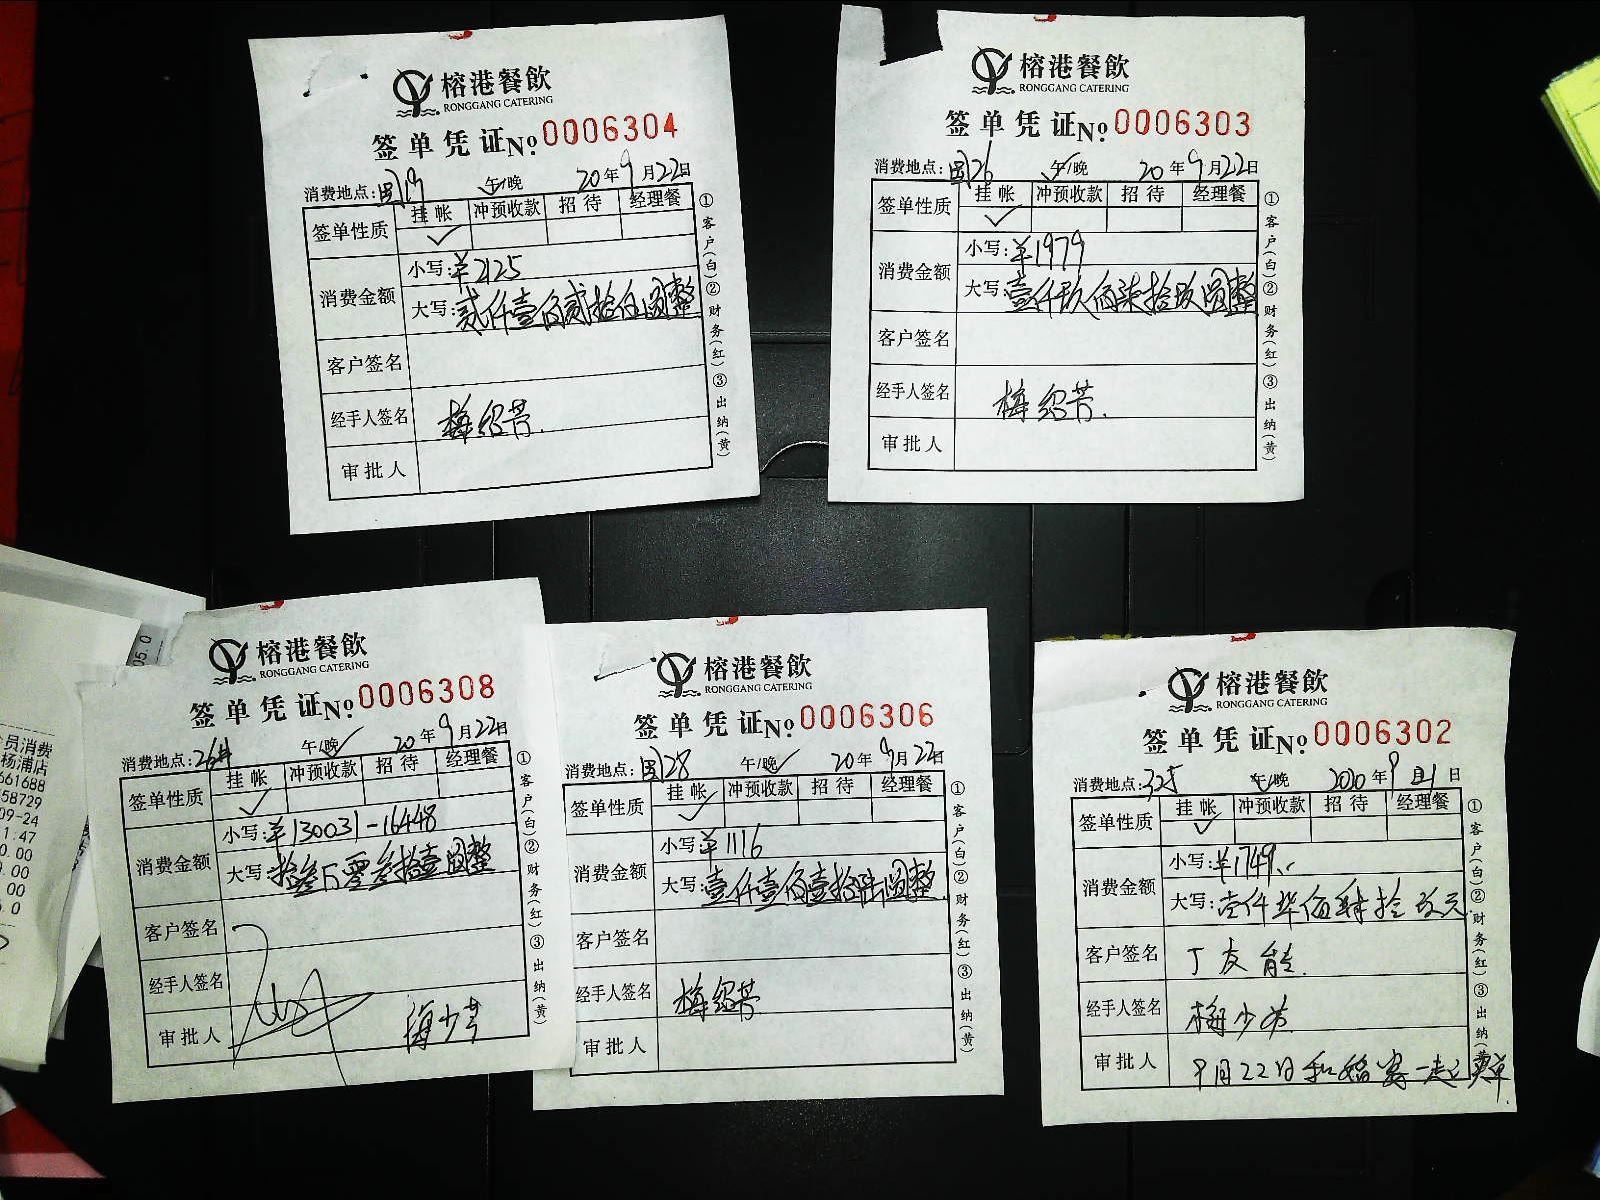 榕港餐飲
RONGGANG CATERING
签单凭证No. 0006304
消费地点: 19 午/晚 20年9月22日
签单性质 挂帐 冲预收款 招待 经理餐
✓
消费金额 小写:¥2125
大写:贰仟壹佰贰拾伍圆整
客户签名
经手人签名 梅绍芳.
审批人
①客户(白)②财务(红)③出纳(黄)
榕港餐飲
RONGGANG CATERING
签单凭证No. 0006303
消费地点: 26 午/晚 20年9月22日
签单性质 挂帐 冲预收款 招待 经理餐
✓
消费金额 小写:¥1979
大写:壹仟玖佰柒拾玖圆整
客户签名
经手人签名 梅绍芳.
审批人
①客户(白)②财务(红)③出纳(黄)
榕港餐飲
RONGGANG CATERING
签单凭证No. 0006308
消费地点: 26# 午/晚 20年9月22日
签单性质 挂帐 冲预收款 招待 经理餐
✓
消费金额 小写:¥130031-16448
大写:拾叁万零叁拾壹圆整
客户签名
经手人签名
审批人 梅少芳
①客户(白)②财务(红)③出纳(黄)
榕港餐飲
RONGGANG CATERING
签单凭证No. 0006306
消费地点: 28 午/晚 20年9月22日
签单性质 挂帐 冲预收款 招待 经理餐
✓
消费金额 小写:¥1116
大写:壹仟壹佰壹拾陆圆整
客户签名
经手人签名 梅绍芳
审批人
①客户(白)②财务(红)③出纳(黄)
榕港餐飲
RONGGANG CATERING
签单凭证No. 0006302
消费地点: 325 午/晚 2020年9月 日
签单性质 挂帐 冲预收款 招待 经理餐
✓
消费金额 小写:¥1749
大写:壹仟柒佰肆拾玖元
客户签名 丁友能.
经手人签名 梅少芳
审批人 9月22日和婚宴一起买单
①客户(白)②财务(红)③出纳(黄)
05.0
员消费
杨浦店
661688
58729
09-24
1:47
0.00
.00
.00
.0